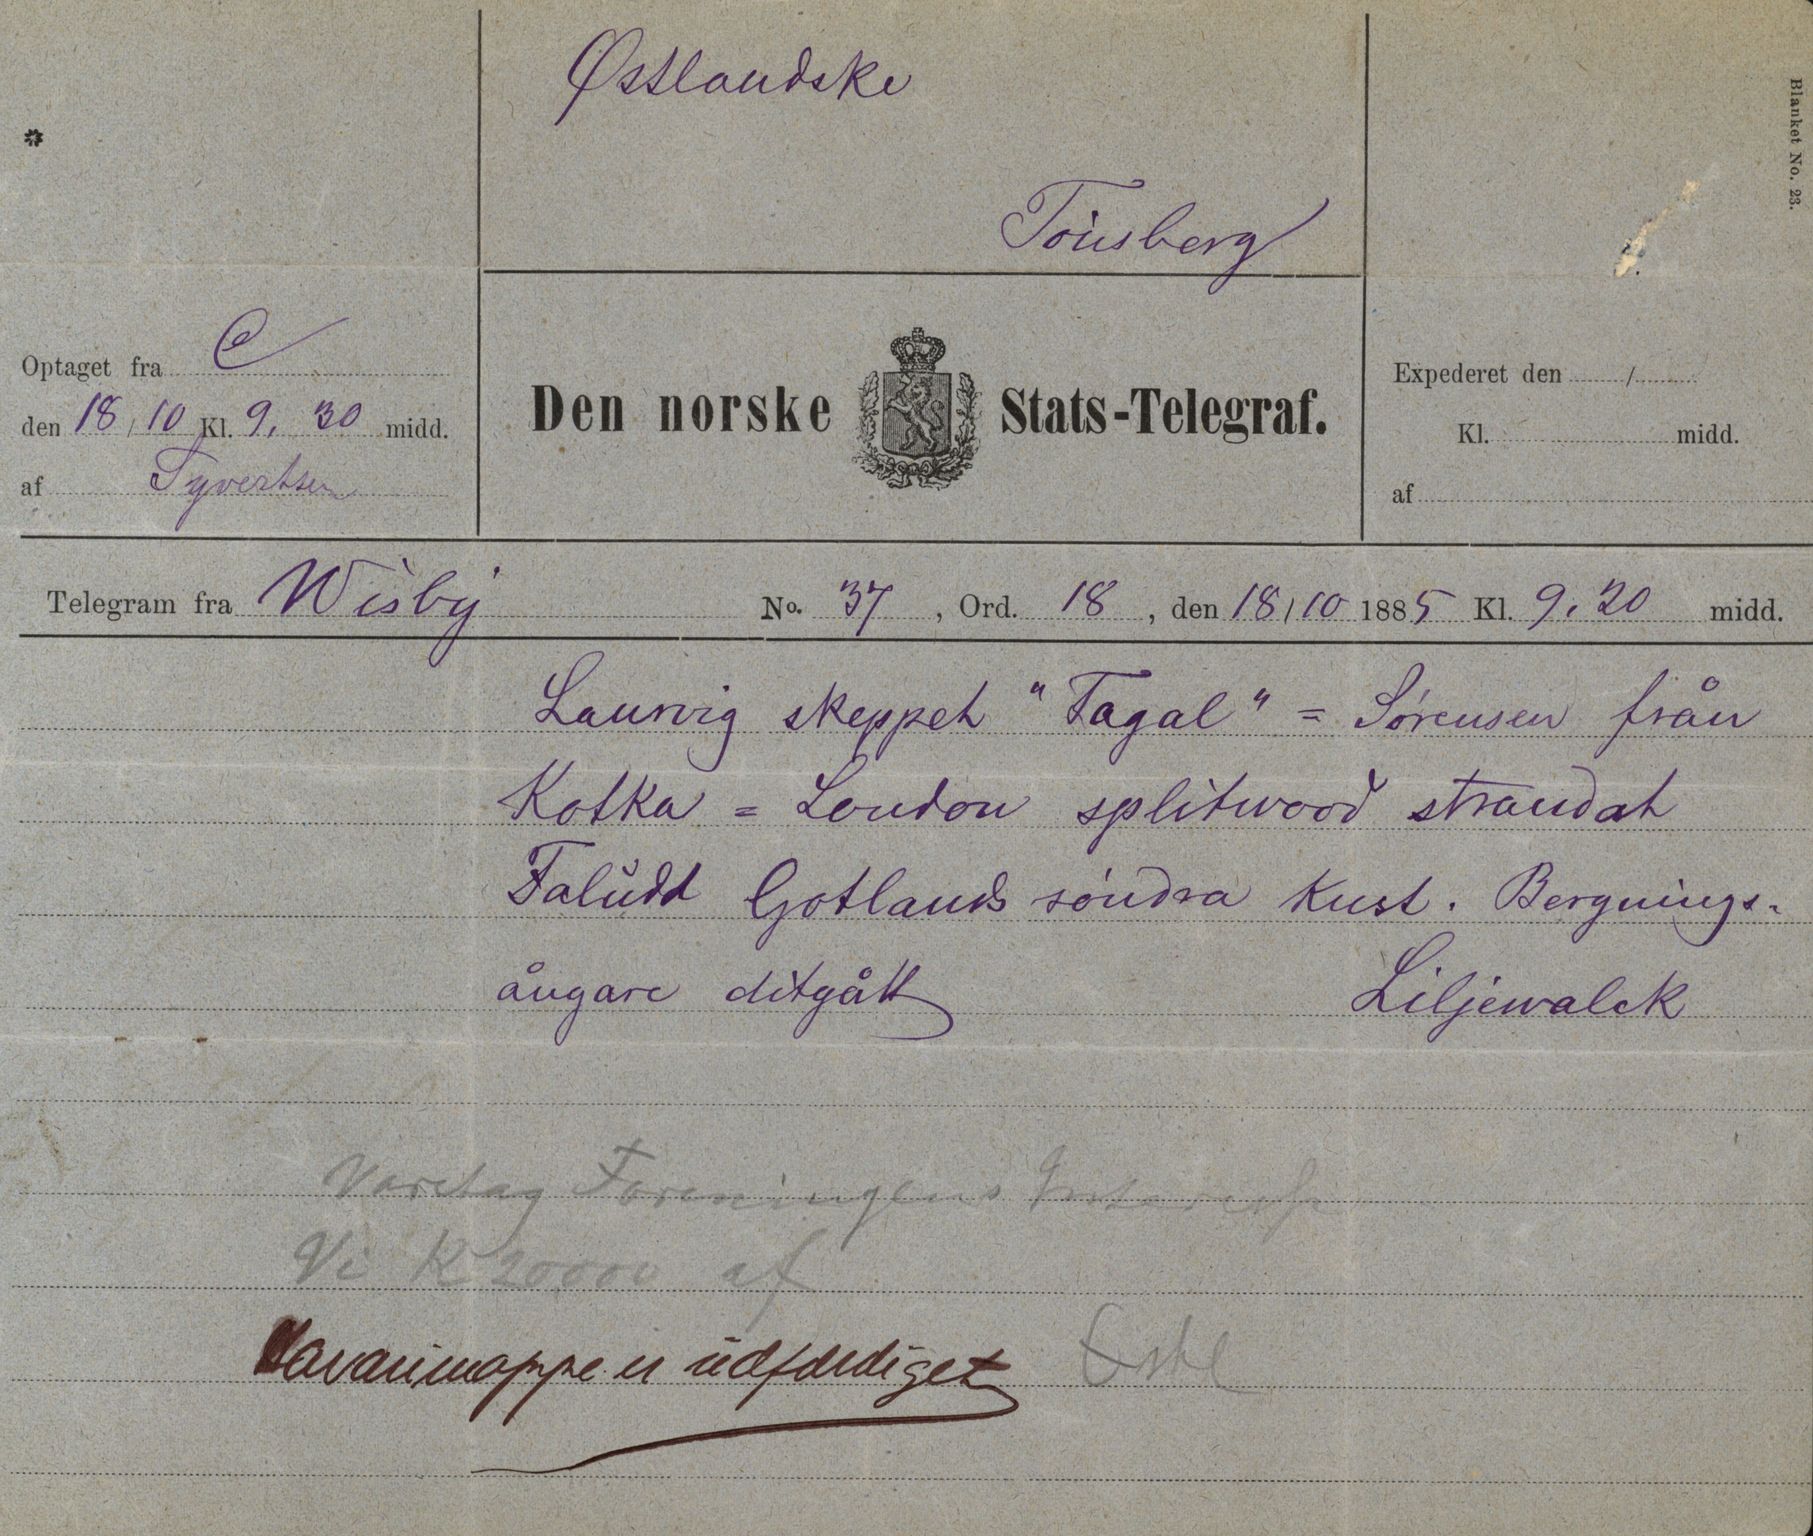 Østlandske
Tönsberg
Blanket No. 23.
Optaget fra C
den 18/10 Kl. 9,30 midd.
af Syvertsen
Den norske Stats-Telegraf.
Expederet den /
Kl. midd.
af
Telegram fra Wisby No. 37, Ord. 18, den 18/10 1885 Kl. 9,20 midd.
Laurvig skeppet "Fagal" = Sørensen från
Kotka = London splitwood strandat
Faludd Gotlands söndra kust. Bergnings-
ångare ditgått Liljewalck
Varetag Foreningens Interesse
Vi K 20000 af
Havarimappe er udfærdiget Østl